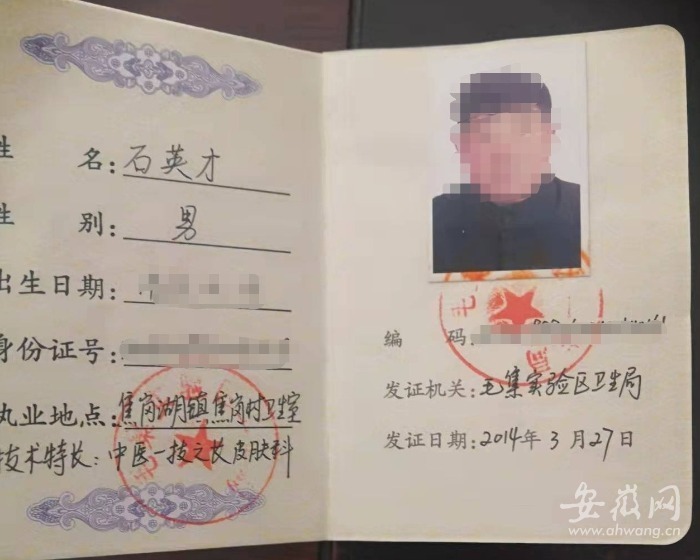 姓 名：石英才
性 别：男
出生日期：
身份证号：
执业地点：焦岗湖镇焦岗村卫生室
技术特长：中医一技之长皮肤科
编 码：
发证机关：毛集实验区卫生局
发证日期：2014年3月27日
安徽网
www.ahwang.cn